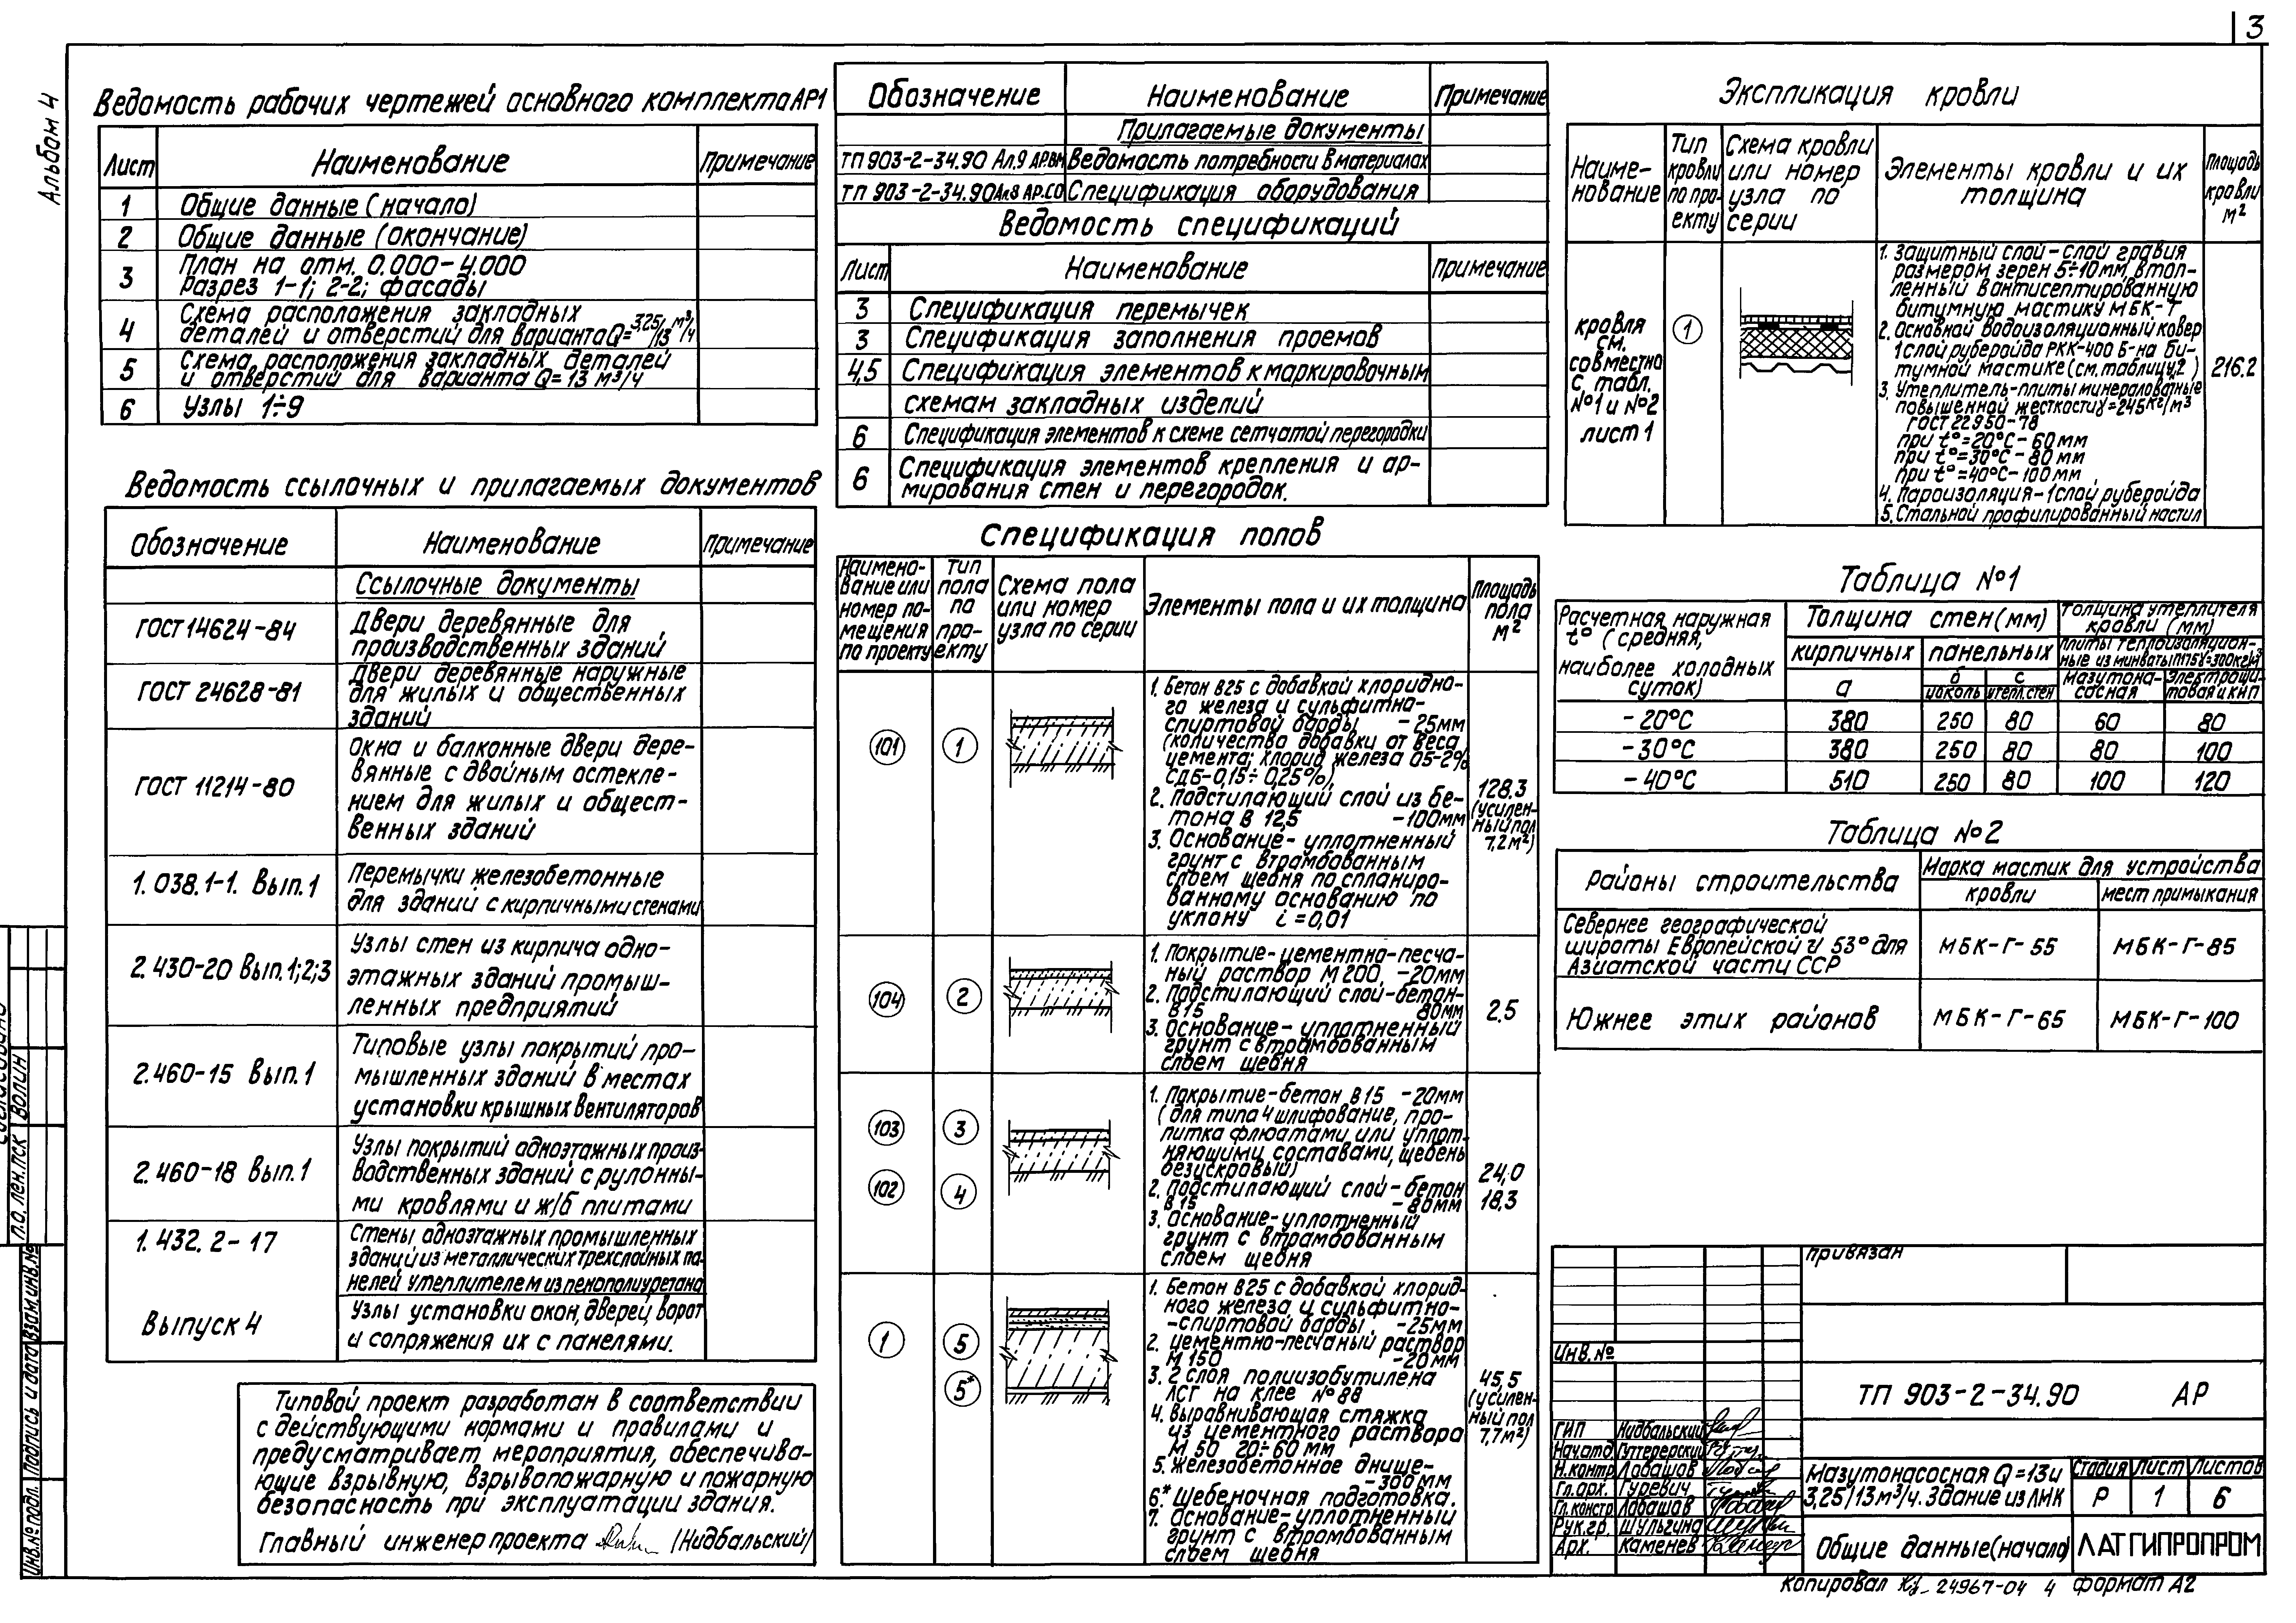 3
Альбом 4
Ведомость рабочих чертежей основного комплекта АР1
Лист Наименование Примечание
1 Общие данные (начало)
2 Общие данные (окончание)
3 План на отм. 0.000-4.000
Разрез 1-1; 2-2; фасады
4 Схема расположения закладных
деталей и отверстий для варианта Q=3,25/13 м³/ч
5 Схема расположения закладных деталей
и отверстий для варианта Q=13 м³/ч
6 Узлы 1÷9
Ведомость ссылочных и прилагаемых документов
Обозначение Наименование Примечание
Ссылочные документы
ГОСТ 14624-84 Двери деревянные для
производственных зданий
ГОСТ 24628-81 Двери деревянные наружные
для жилых и общественных
зданий
ГОСТ 11214-80 Окна и балконные двери дере-
вянные с двойным остекле-
нием для жилых и общест-
венных зданий
1.038.1-1. Вып.1 Перемычки железобетонные
для зданий с кирпичными стенами
2.430-20 Вып.1;2;3 Узлы стен из кирпича одно-
этажных зданий промыш-
ленных предприятий
2.460-15 Вып.1 Типовые узлы покрытий про-
мышленных зданий в местах
установки крышных вентиляторов
2.460-18 Вып.1 Узлы покрытий одноэтажных произ-
водственных зданий с рулонны-
ми кровлями и ж/б плитами
1.432.2-17 Стены одноэтажных промышленных
зданий из металлических трехслойных па-
нелей утеплителем из пенополиуретана
Выпуск 4 Узлы установки окон, дверей, ворот
и сопряжения их с панелями.
Типовой проект разработан в соответствии
с действующими нормами и правилами и
предусматривает мероприятия, обеспечива-
ющие взрывную, взрывопожарную и пожарную
безопасность при эксплуатации здания.
Главный инженер проекта /Нидбальский/
Обозначение Наименование Примечание
Прилагаемые документы
ТП 903-2-34.90 Ал.9 АР.ВМ Ведомость потребности в материалах
ТП 903-2-34.90 Ал.8 АР.СО Спецификация оборудования
Ведомость спецификаций
Лист Наименование Примечание
3 Спецификация перемычек
3 Спецификация заполнения проемов
4,5 Спецификация элементов к маркировочным
схемам закладных изделий
6 Спецификация элементов к схеме сетчатой перегородки
6 Спецификация элементов крепления и ар-
мирования стен и перегородок.
Спецификация полов
Наимено-
вание или
номер по-
мещения
по проекту
Тип
пола
по
про-
екту
Схема пола
или номер
узла по серии
Элементы пола и их толщина
Площадь
пола
м²
101 1
1. Бетон В25 с добавкой хлоридно-
го железа и сульфитно-
спиртовой барды -25мм
(количества добавки от веса
цемента; хлорид железа 05-2%
СДБ-0,15÷0,25%)
2. Подстилающий слой из бе-
тона В 12,5 -100мм
3. Основание- уплотненный
грунт с втрамбованным
слоем щебня по спланиро-
ванному основанию по
уклону i=0,01
128.3
(усилен-
ный пол
7,2м²)
104 2
1. Покрытие-цементно-песча-
ный раствор М200, -20мм
2. Подстилающий слой-бетон-
В15 80мм
3. Основание- уплотненный
грунт с втрамбованным
слоем щебня
2.5
103 3
102 4
1. Покрытие-бетон В15 -20мм
(для типа 4 шлифование, про-
питка флюатами или уплот-
няющими составами, щебень
безискровый)
2. Подстилающий слой-бетон
В15 -80мм
3. Основание-уплотненный
грунт с втрамбованным
слоем щебня
24,0
18,3
1 5
5*
1. Бетон В25 с добавкой хлорид-
ного железа и сульфитно-
-спиртовой барды -25мм
2. Цементно-песчаный раствор
М 150 -20мм
3. 2 слоя полиизобутилена
ПСГ на клее №88
4. Выравнивающая стяжка
из цементного раствора
М 50 20÷60 мм
5. Железобетонное днище-
-300мм
6* Щебеночная подготовка.
7. Основание-уплотненный
грунт с втрамбованным
слоем щебня
45,5
(усилен-
ный пол
7,7м²)
Экспликация кровли
Наиме-
нование
Тип
кровли
по про-
екту
Схема кровли
или номер
узла по
серии
Элементы кровли и их
толщина
Площадь
кровли
м²
кровля
см.
совместно
с табл.
№1 и №2
лист 1
1
1. Защитный слой-слой гравия
размером зерен 5÷10мм, втоп-
ленный в антисептированную
битумную мастику МБК-Г
2. Основной водоизоляционный ковер
1 слой рубероида РКК-400 Б-на би-
тумной мастике (см.таблицу2)
3. Утеплитель-плиты минераловатные
повышенной жесткости γ=245кг/м³
ГОСТ 22950-78
при t°=20°С-60мм
при t°=30°С-80мм
при t°=40°С-100мм
4. Пароизоляция-1 слой рубероида
5. Стальной профилированный настил
216.2
Таблица №1
Расчетная наружная
t° (средняя,
наиболее холодных
суток)
Толщина стен (мм)
Толщина утеплителя
кровли (мм)
кирпичных панельных
Плиты теплоизоляцион-
ные из минваты ПП5 γ=300кг/м³
а б цоколь с утепл.стен
Мазутона-
сосная
Электрощи-
товая и КИП
-20°С 380 250 80 60 80
-30°С 380 250 80 80 100
-40°С 510 250 80 100 120
Таблица №2
Районы строительства Марка мастик для устройства
кровли мест примыкания
Севернее географической
широты Европейской и 53° для
Азиатской части СССР
МБК-Г-55 МБК-Г-85
Южнее этих районов МБК-Г-65 МБК-Г-100
Привязан
Инв.№
ТП 903-2-34.90 АР
ГИП Нидбальский
Нач.отд. Гуттерерский
Н.контр Лабашов
Гл.арх. Гуревич
Гл.констр Лабашов
Рук.гр. Шульгина
Арх. Каменев
Мазутонасосная Q=13 и
3,25/13м³/ч. Здание из ЛМК
Стадия Лист Листов
Р 1 6
Общие данные (начало)
ЛАТГИПРОПРОМ
Копировал 24967-04 4 формат А2
Согласовано
Л.О. Лен.ПСК Волин
Инв.№подл. Подпись и дата Взам.инв.№